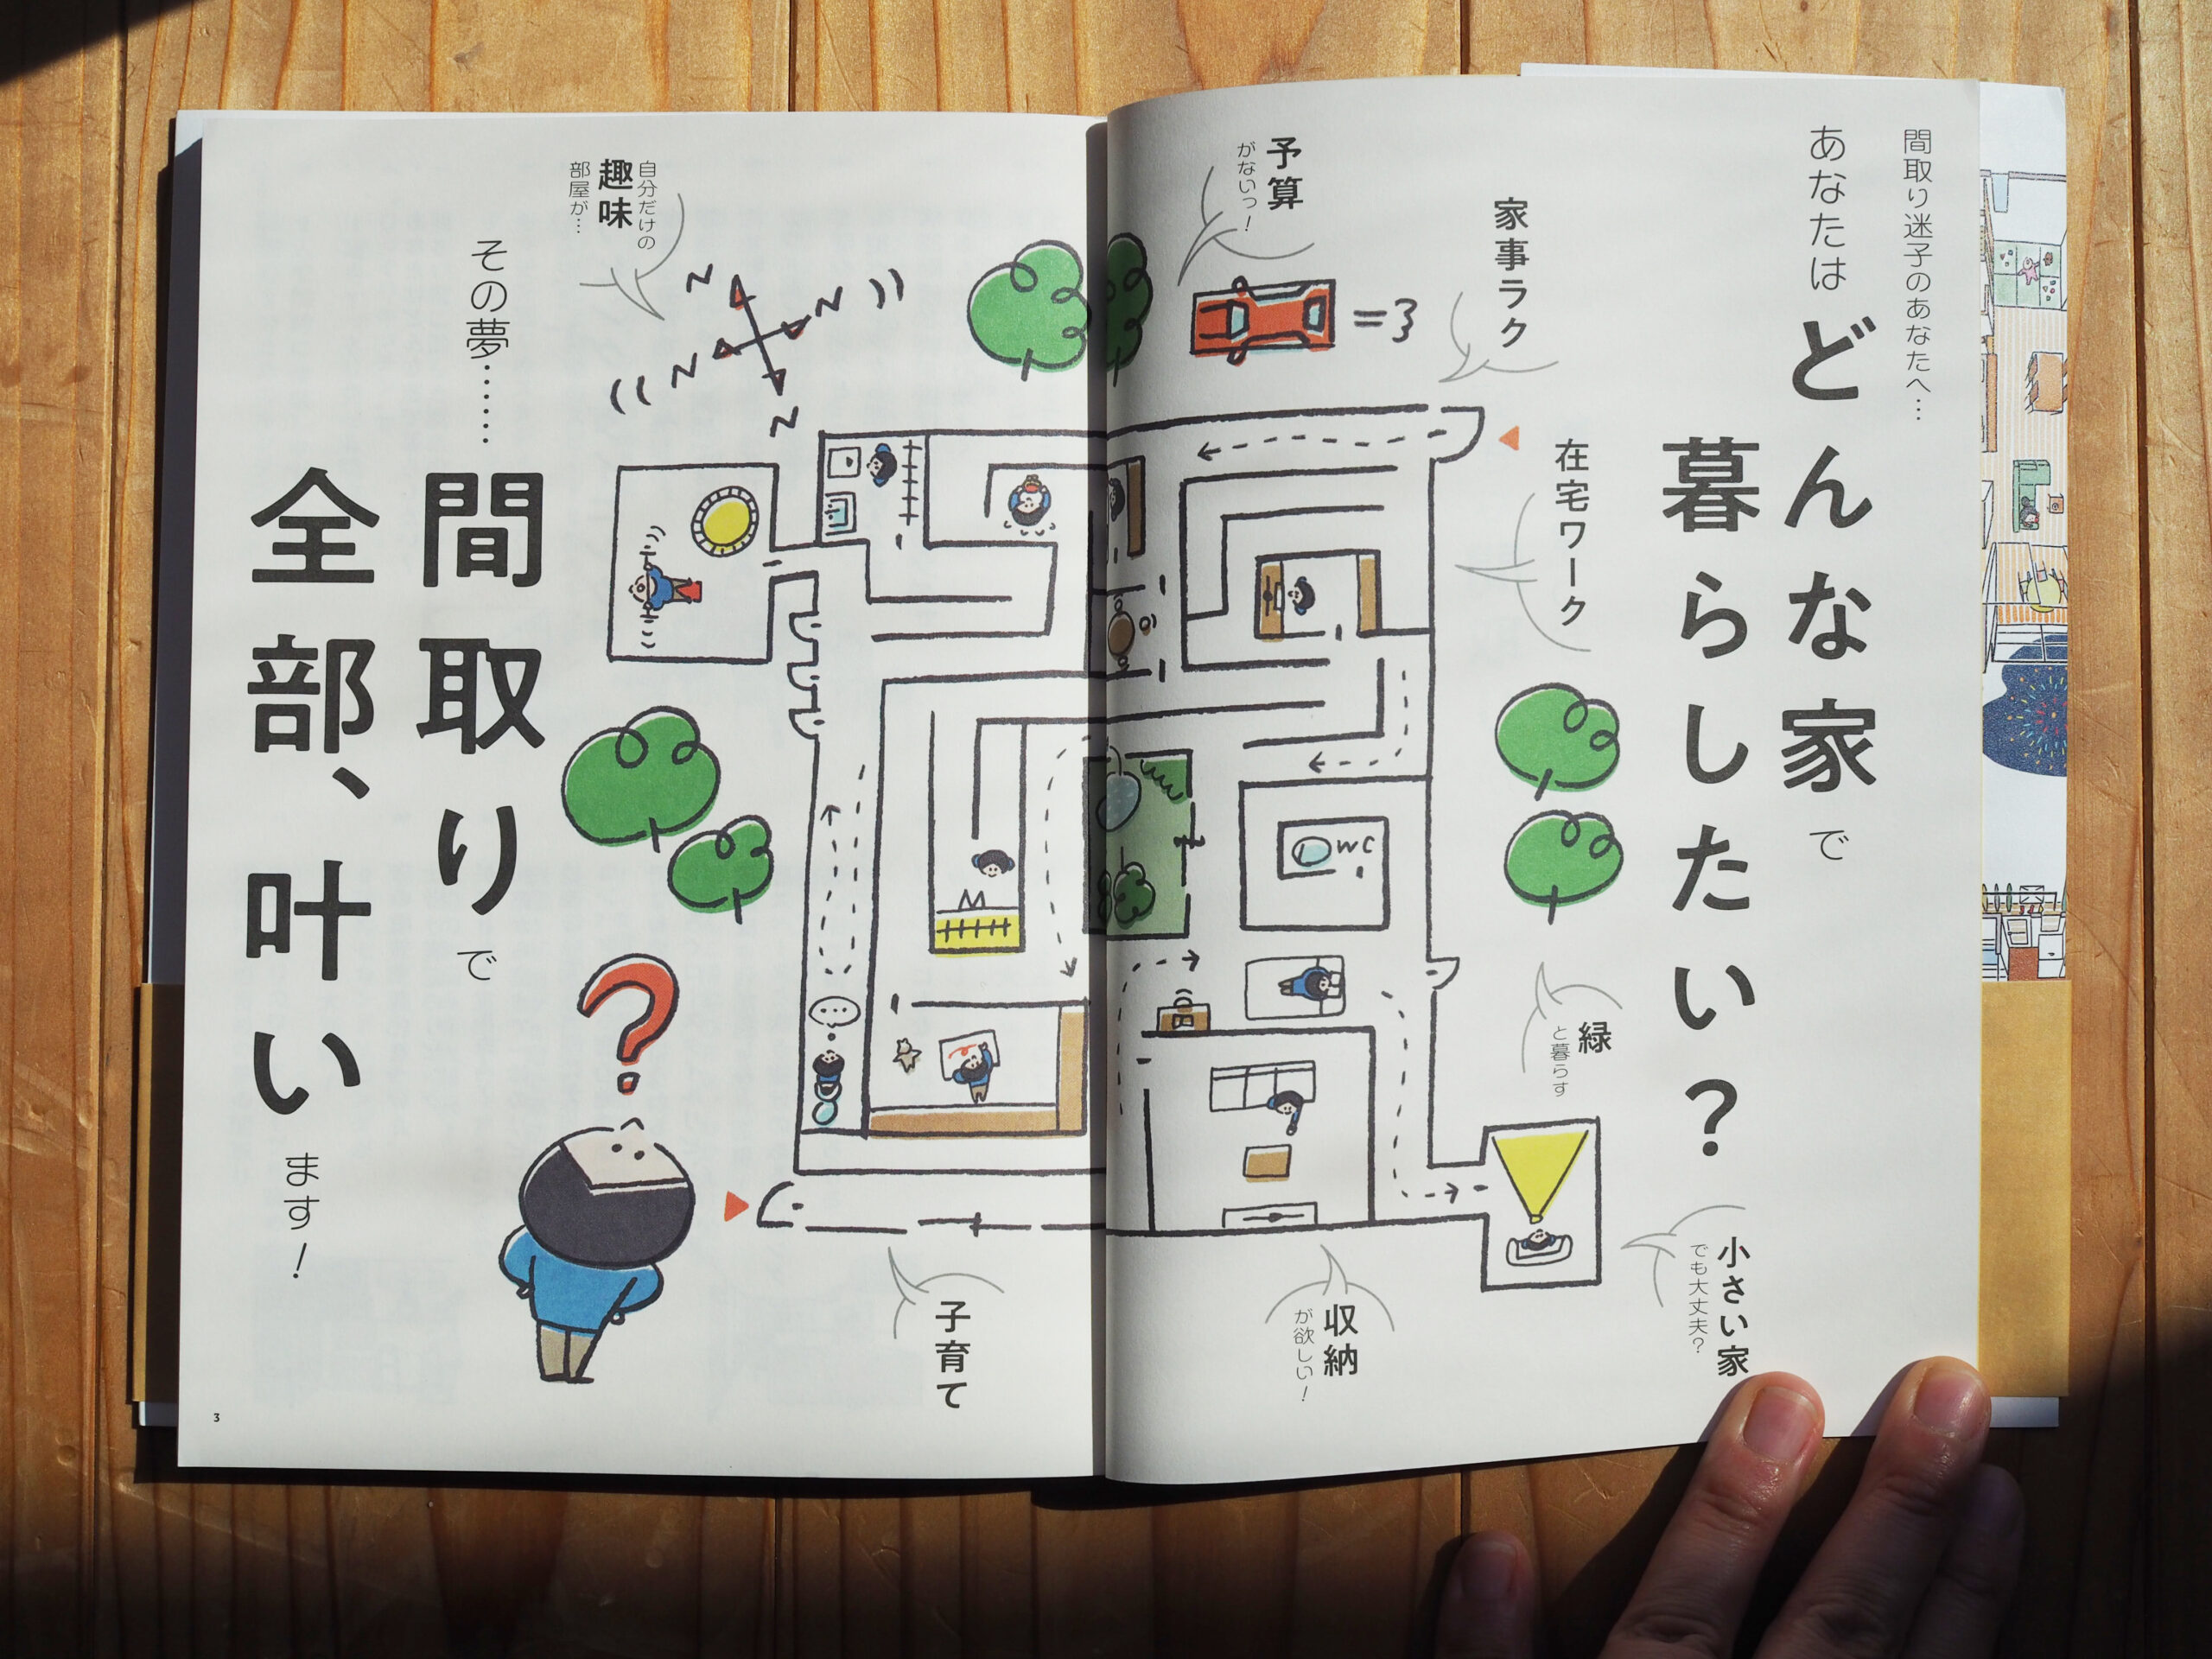 間取り迷子のあなたへ…
あなたはどんな家で
暮らしたい？
家事ラク
予算
がないっ！
在宅ワーク
緑
と暮らす
小さい家
でも大丈夫？
収納
が欲しい！
WC
自分だけの
趣味
部屋が…
N
N
N
N
その夢……
間取りで
全部、叶います！
子育て
3